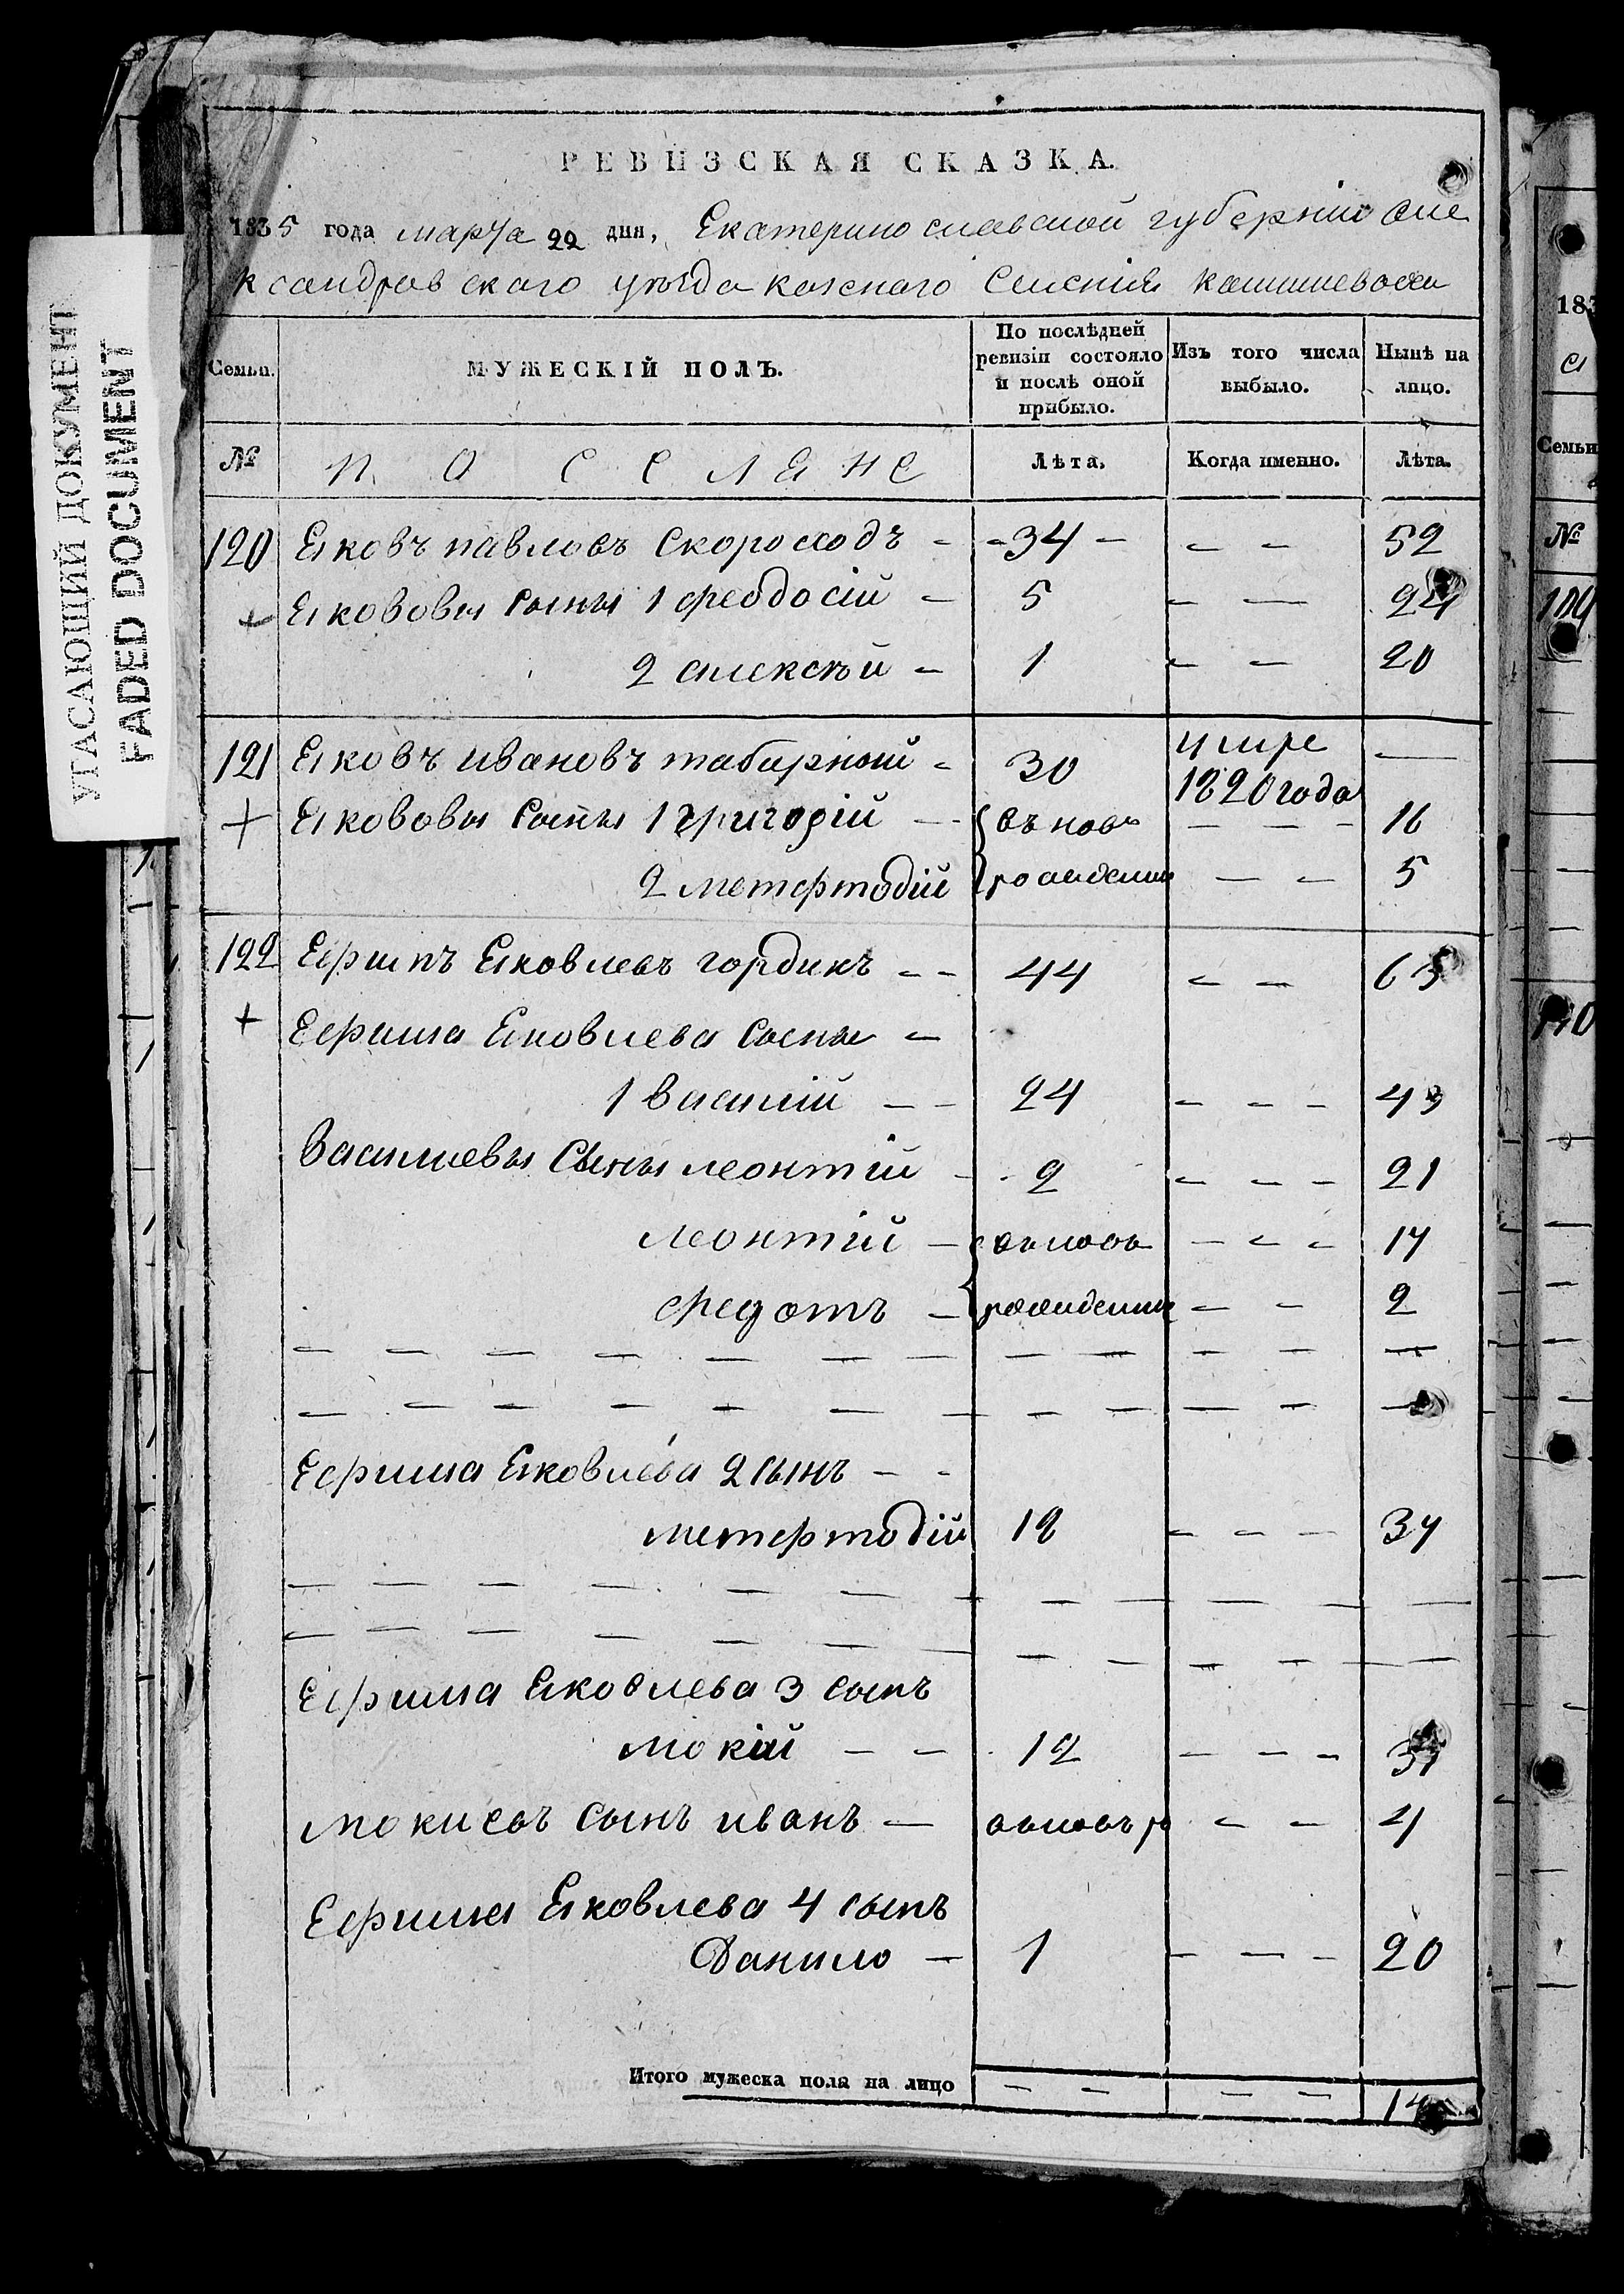 УГАСАЮЩИЙ ДОКУМЕНТ
FADED DOCUMENT
РЕВИЗСКАЯ СКАЗКА.
1835 года марта 22 дня, Екатерино славской губерніи Але
ксандров скаго уѣзда казенаго Селенія
Семьи. МУЖЕСКІЙ ПОЛЪ. По послѣдней ревизіи состояло и послѣ оной прибыло. Изъ того числа выбыло. Нынѣ на лицо.
№ Лѣта. Когда именно. Лѣта.
120 Яковъ павловъ Скороходъ - - 34 - - - 52
+ Якововы сыны 1 феодосій - 5 - - 24
2 алексѣй - 1 - - 20
121 Яковъ ивановъ табарный - 30 умре 1820 года -
+ Якововы сыны 1 григорій - въ новь - - - 16
2 метфтодій рождении - - 5
122 Ефимъ Яковлевъ гордикъ - - 44 - - 63
+ Ефима Яковлева сыны -
1 василій - - 24 - - - 43
василиевы сыны леонтій - 2 - - - 21
леонтій - вьновь - - - 17
федотъ - рожидении - - 2
- - - - - - - - - - - -
- - - - - - - - - - - -
Ефима Яковлева 2 сынъ - -
метфтодій 12 - - - 34
- - - - - - - - - - -
- - - - - - - - - - -
Ефима Яковлева 3 сынъ
мокій - - 12 - - - 31
мокиевъ сынъ иванъ - вьновь р - - 4
Ефима Яковлева 4 сынъ
Данило - 1 - - - 20
Итого мужеска пола на лицо - - - - 14
183
Семьи
№
110